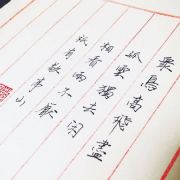 眾鳥高飛盡
孤雲獨去閑
相看兩不厭
祇有敬亭山